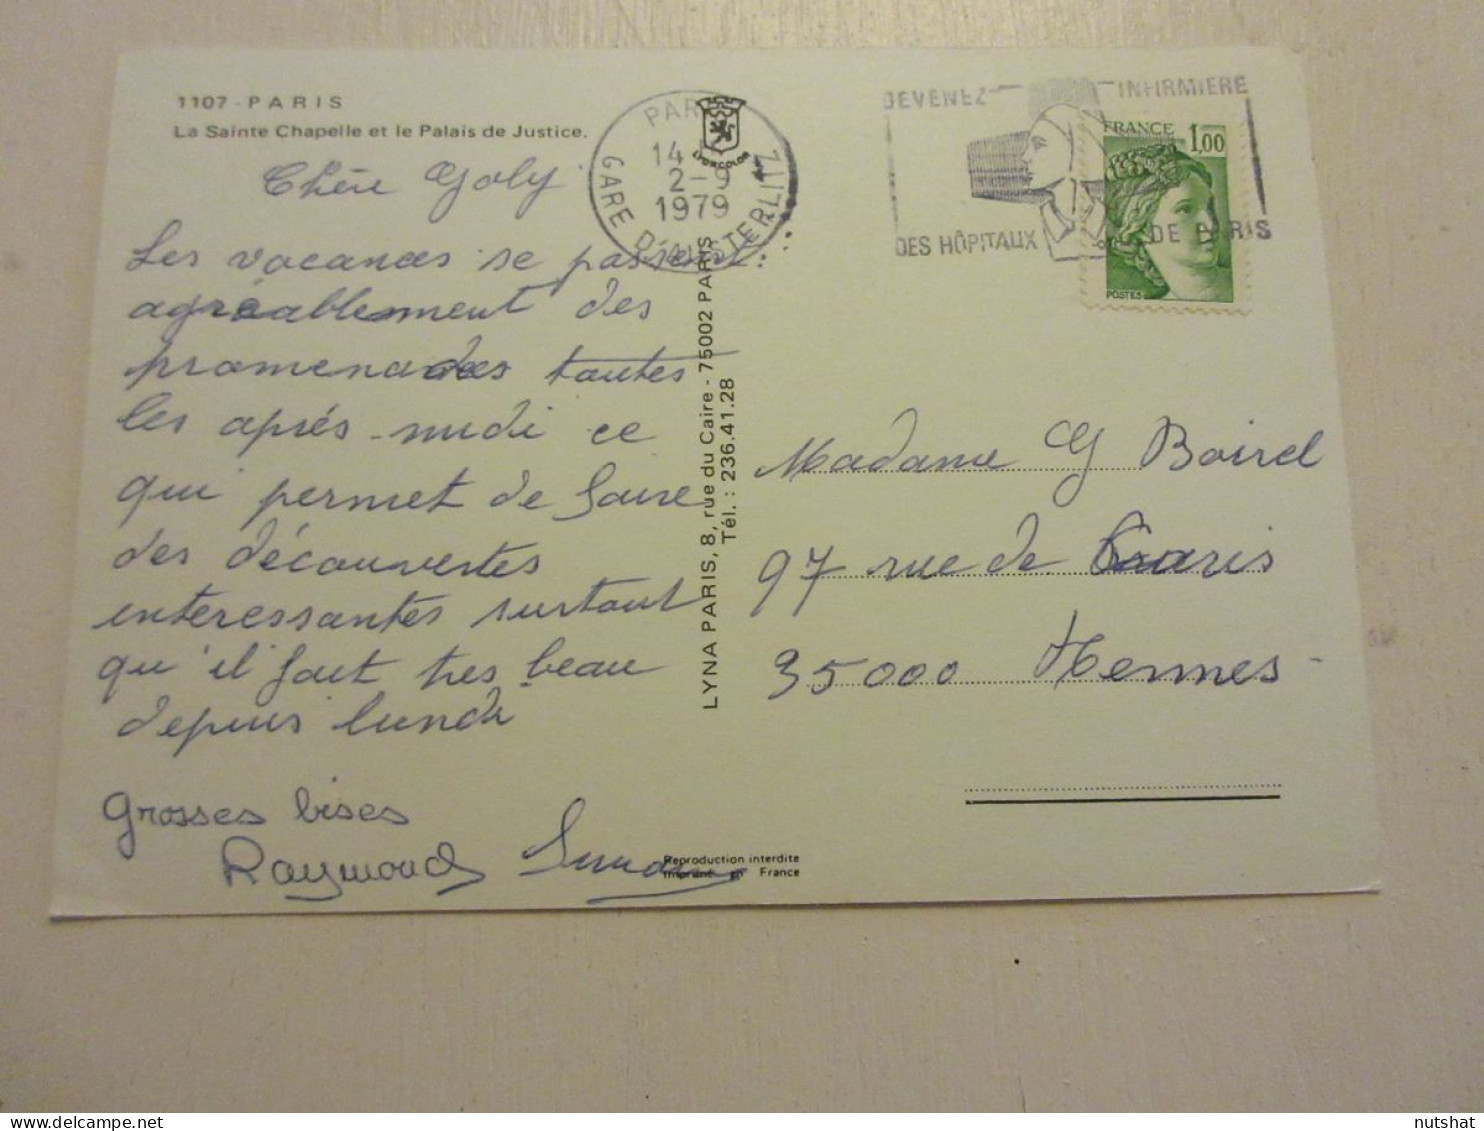 1107 - PARIS
La Sainte Chapelle et le Palais de Justice.
Chère Goly
Les vacances se passent
agréablement des
promenades toutes
les après-midi ce
qui permet de faire
des découvertes
interessantes surtout
qu'il fait tres beau
depuis lundi
Grosses bises
Raymond
PARIS
14
2-9
1979
GARE D'AUSTERLITZ
LYNA PARIS, 8, rue du Caire - 75002 PARIS
Tél. : 236.41.28
Reproduction interdite
Imprimé en France
DEVENEZ INFIRMIERE
DES HÔPITAUX DE PARIS
FRANCE 1,00
POSTES
Madame G Boirel
97 rue de Paris
35000 Rennes
nutshat